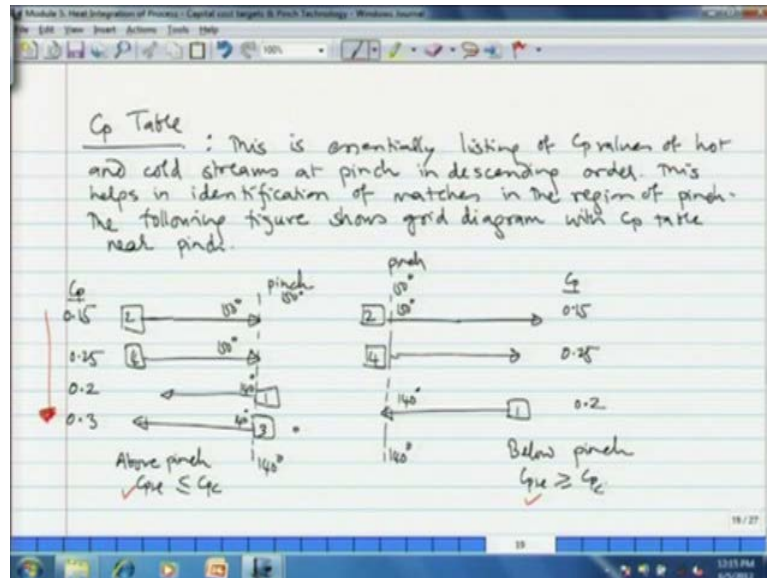 Module 5: Heat Integration of Process - Capital cost targets & Pinch Technology - Windows Journal
File Edit View Insert Actions Tools Help
100%
Cp Table
: This is essentially listing of Cp values of hot
and cold streams at pinch in descending order. This
helps in identification of matches in the region of pinch.
The following figure shows grid diagram with Cp table
near pinch.
Cp pinch 150° pinch 150° Cp
0.15 2 150° 2 150° 0.15
0.25 4 150° 4 0.25
0.2 140° 1 140° 1 0.2
0.3 140° 3
140° 140°
Above pinch Below pinch
CpH ≤ CpC CpH ≥ CpC
19 / 27
19
12:15 PM